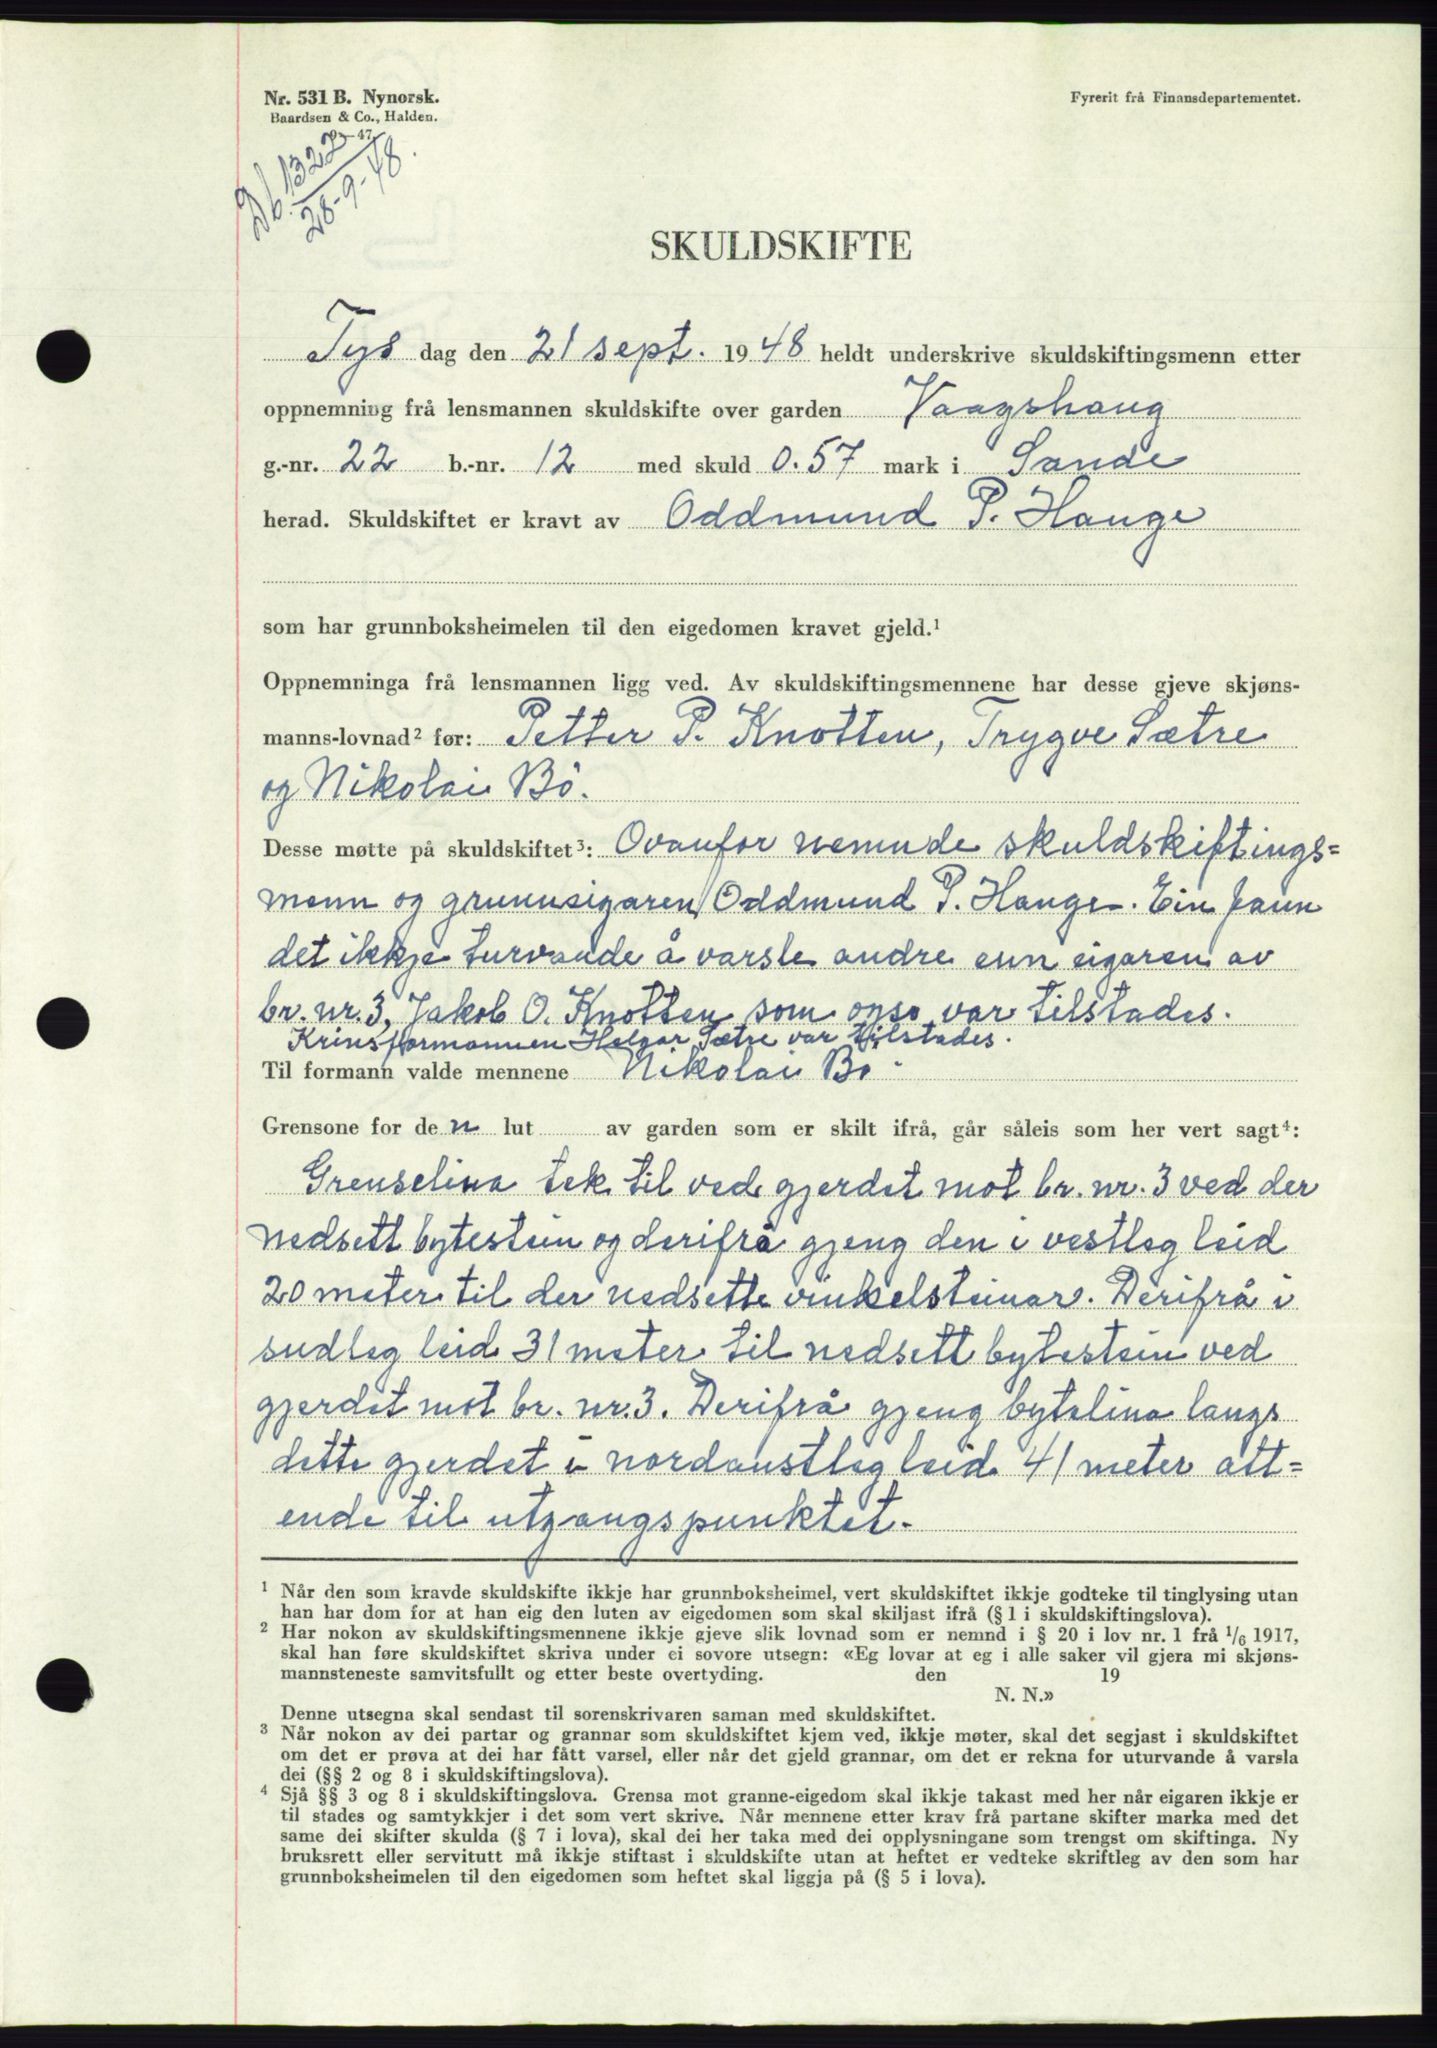 Nr. 531 B. Nynorsk.
Baardsen & Co., Halden.
9—47
Db. 1322
28-9-48.
Fyrerit frå Finansdepartementet.
SKULDSKIFTE
Tys dag den 21 sept. 1948 heldt underskrive skuldskiftingsmenn etter
oppnemning frå lensmannen skuldskifte over garden Vaagshaug
g.-nr. 22 b.-nr. 12 med skuld 0.57 mark i Sande
herad. Skuldskiftet er kravt av Oddmund P. Hauge
som har grunnboksheimelen til den eigedomen kravet gjeld.¹
Oppnemninga frå lensmannen ligg ved. Av skuldskiftingsmennene har desse gjeve skjøns-
manns-lovnad² før: Petter P. Knotten, Trygve Sætre
og Nikolai Bö.
Desse møtte på skuldskiftet³: Ovanfor nemnde skuldskiftings=
menn og grunneigaren Oddmund P. Hauge. Ein fann
det ikkje turvande å varsle andre enn eigaren av
br. nr. 3, Jakob O. Knotten som ogso var tilstades.
Krinsformannen Helgar Sætre var tilstades.
Til formann valde mennene Nikolai Bö.
Grensone for den lut av garden som er skilt ifrå, går såleis som her vert sagt⁴:
Grenselina tek til ved gjerdet mot br. nr. 3 ved der
nedsett bytestein og derifrå gjeng den i vestleg leid
20 meter til der nedsette vinkelsteinar. Derifrå i
sudleg leid 31 meter til nedsett bytestein ved
gjerdet mot br. nr. 3. Derifrå gjeng bytelina langs
dette gjerdet i nordaustleg leid 41 meter att=
ende til utgangspunktet.
¹ Når den som kravde skuldskifte ikkje har grunnboksheimel, vert skuldskiftet ikkje godteke til tinglysing utan
han har dom for at han eig den luten av eigedomen som skal skiljast ifrå (§ 1 i skuldskiftingslova).
² Har nokon av skuldskiftingsmennene ikkje gjeve slik lovnad som er nemnd i § 20 i lov nr. 1 frå 1/6 1917,
skal han føre skuldskiftet skriva under ei sovore utsegn: «Eg lovar at eg i alle saker vil gjera mi skjøns-
mannsteneste samvitsfullt og etter beste overtyding. den 19
N. N.»
Denne utsegna skal sendast til sorenskrivaren saman med skuldskiftet.
³ Når nokon av dei partar og grannar som skuldskiftet kjem ved, ikkje møter, skal det segjast i skuldskiftet
om det er prøva at dei har fått varsel, eller når det gjeld grannar, om det er rekna for uturvande å varsla
dei (§§ 2 og 8 i skuldskiftingslova).
⁴ Sjå §§ 3 og 8 i skuldskiftingslova. Grensa mot granne-eigedom skal ikkje takast med her når eigaren ikkje er
til stades og samtykkjer i det som vert skrive. Når mennene etter krav frå partane skifter marka med det
same dei skifter skulda (§ 7 i lova), skal dei her taka med dei opplysningane som trengst om skiftinga. Ny
bruksrett eller servitutt må ikkje stiftast i skuldskifte utan at heftet er vedteke skriftleg av den som har
grunnboksheimelen til den eigedomen som heftet skal liggja på (§ 5 i lova).